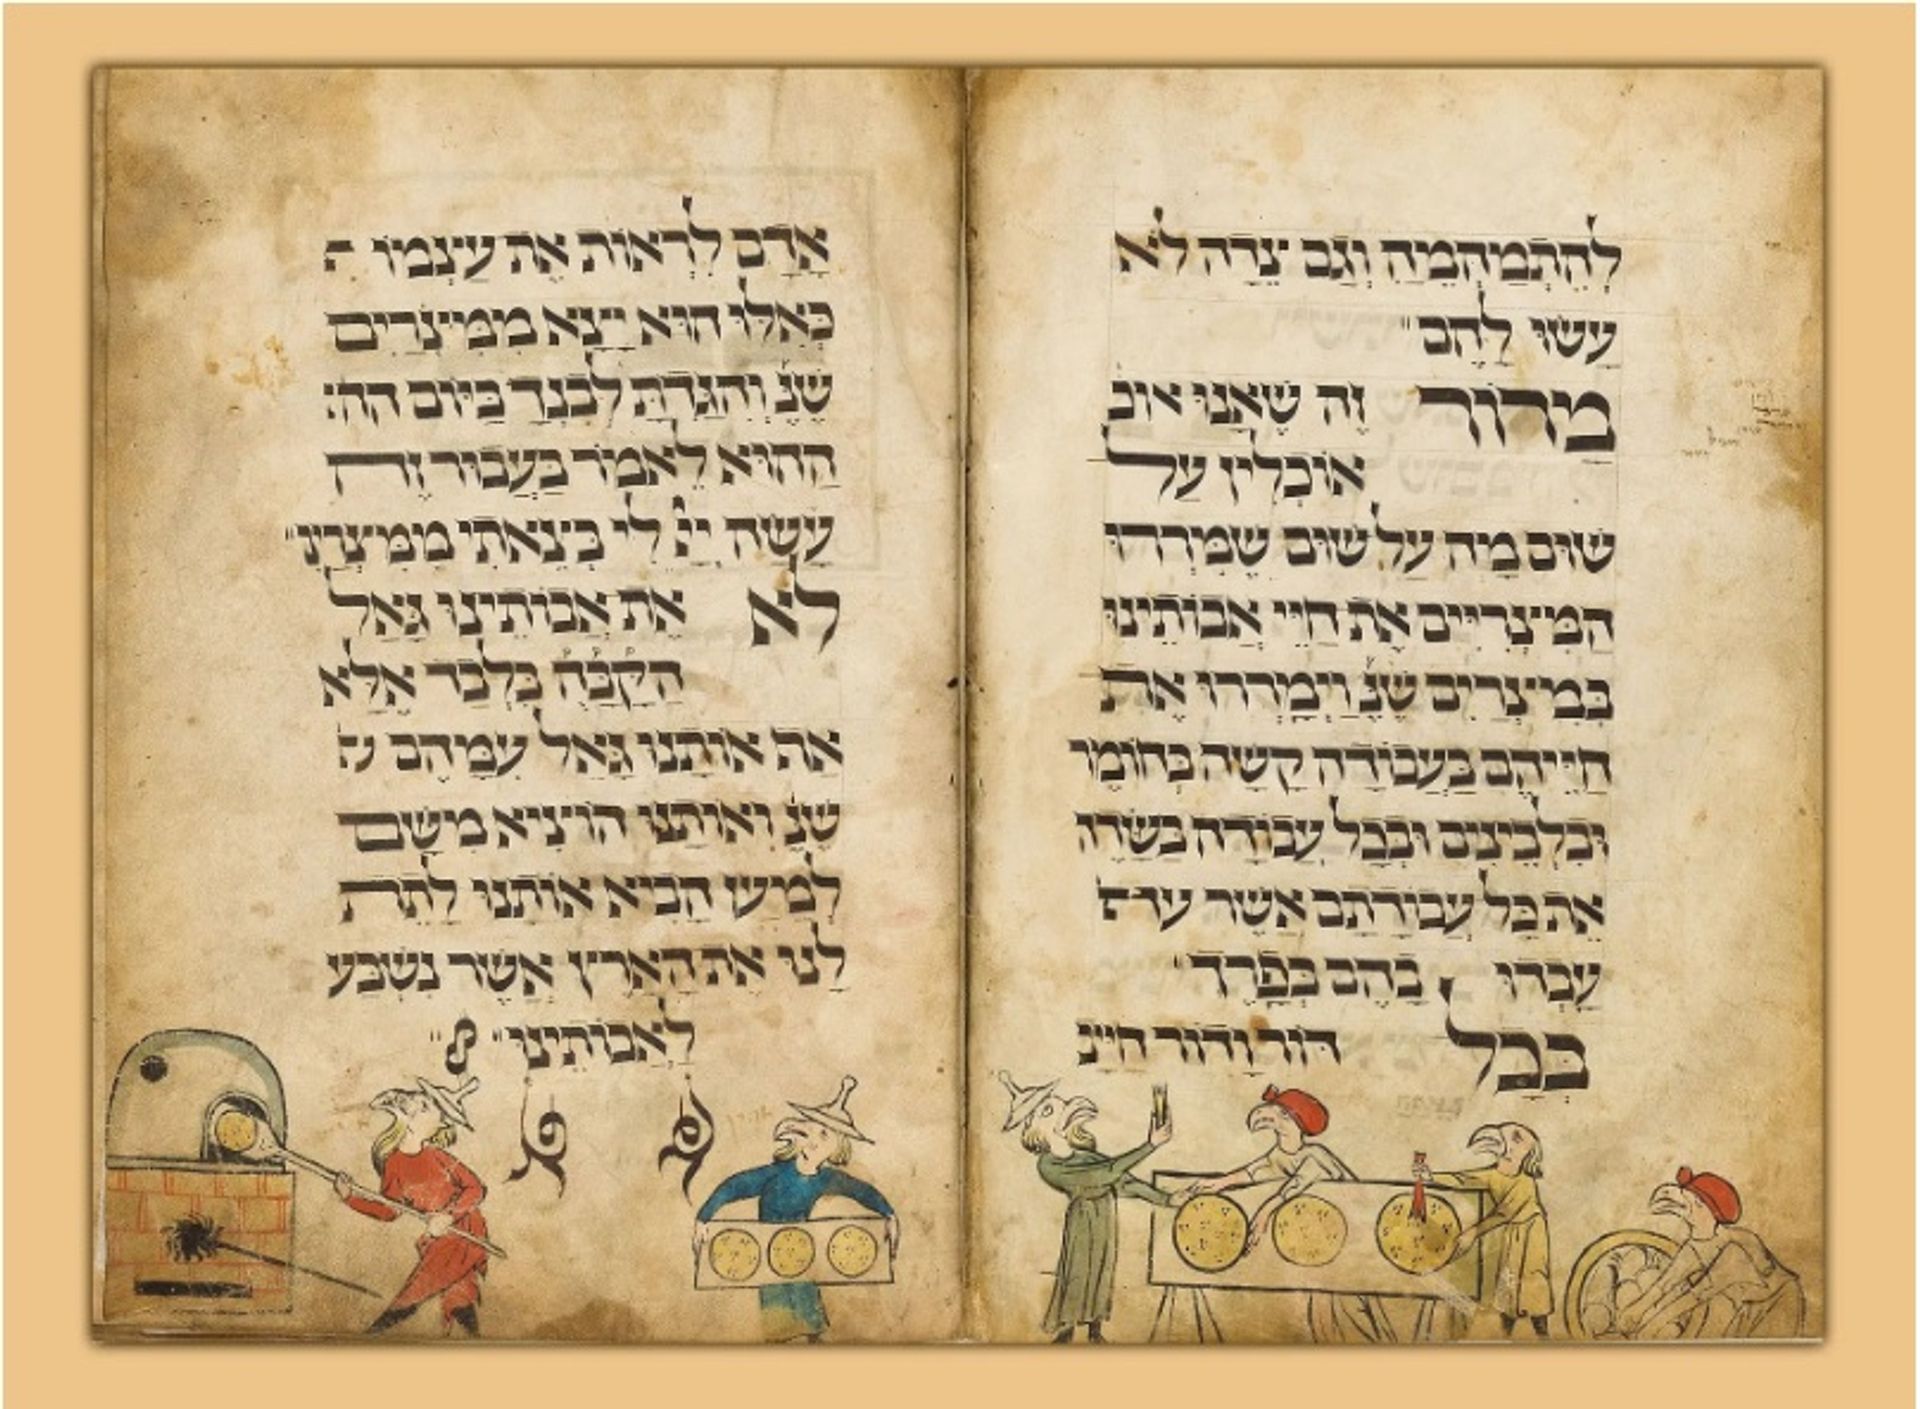 לְהִתְמַהְמֵהַּ וְגַם צֵדָה לֹא
עָשׂוּ לָהֶם״
מָרוֹר זֶה שֶׁאָנוּ אוכ
אוֹכְלִין עַל
שׁוּם מָה עַל שׁוּם שֶׁמֵּרְרוּ
הַמִּצְרִיִּים אֶת חַיֵּי אֲבוֹתֵינוּ
בְּמִצְרַיִם שֶׁנֶּ׳ וַיְמָרְרוּ אֶת
חַיֵּיהֶם בַּעֲבוֹדָה קָשָׁה בְּחוֹמֶר
וּבִלְבֵינִים וּבְכָל עֲבוֹדָה בַּשָּׂדֶה
אֵת כָּל עֲבוֹדָתָם אֲשֶׁר
עָבְדוּ בָהֶם בְּפָרֶךְ״
בְּכָל דּוֹר וָדוֹר חַיָּי׳
אָדָם לִרְאוֹת אֶת עַצְמוֹ
כְּאִלּוּ הוּא יָצָא מִמִּצְרַיִם
שֶׁנֶּ׳ וְהִגַּדְתָּ לְבִנְךָ בַּיּוֹם הה׳
הַהוּא לֵאמֹר בַּעֲבוּר זֶה
עָשָׂה יְיָ׳ לִי בְּצֵאתִי מִמִּצְרַיִ׳״
לֹא אֶת אֲבוֹתֵינוּ גָּאַל
הַקָּבָּה בִּלְבַד אֶלָּא
אַף אוֹתָנוּ גָּאַל עִמָּהֶם
שֶׁנֶּ׳ וְאוֹתָנוּ הוֹצִיא מִשָּׁם
לְמַעַן הָבִיא אוֹתָנוּ לָתֵת
לָנוּ אֶת הָאָרֶץ אֲשֶׁר נִשְׁבַּע
לַאֲבוֹתֵינוּ״